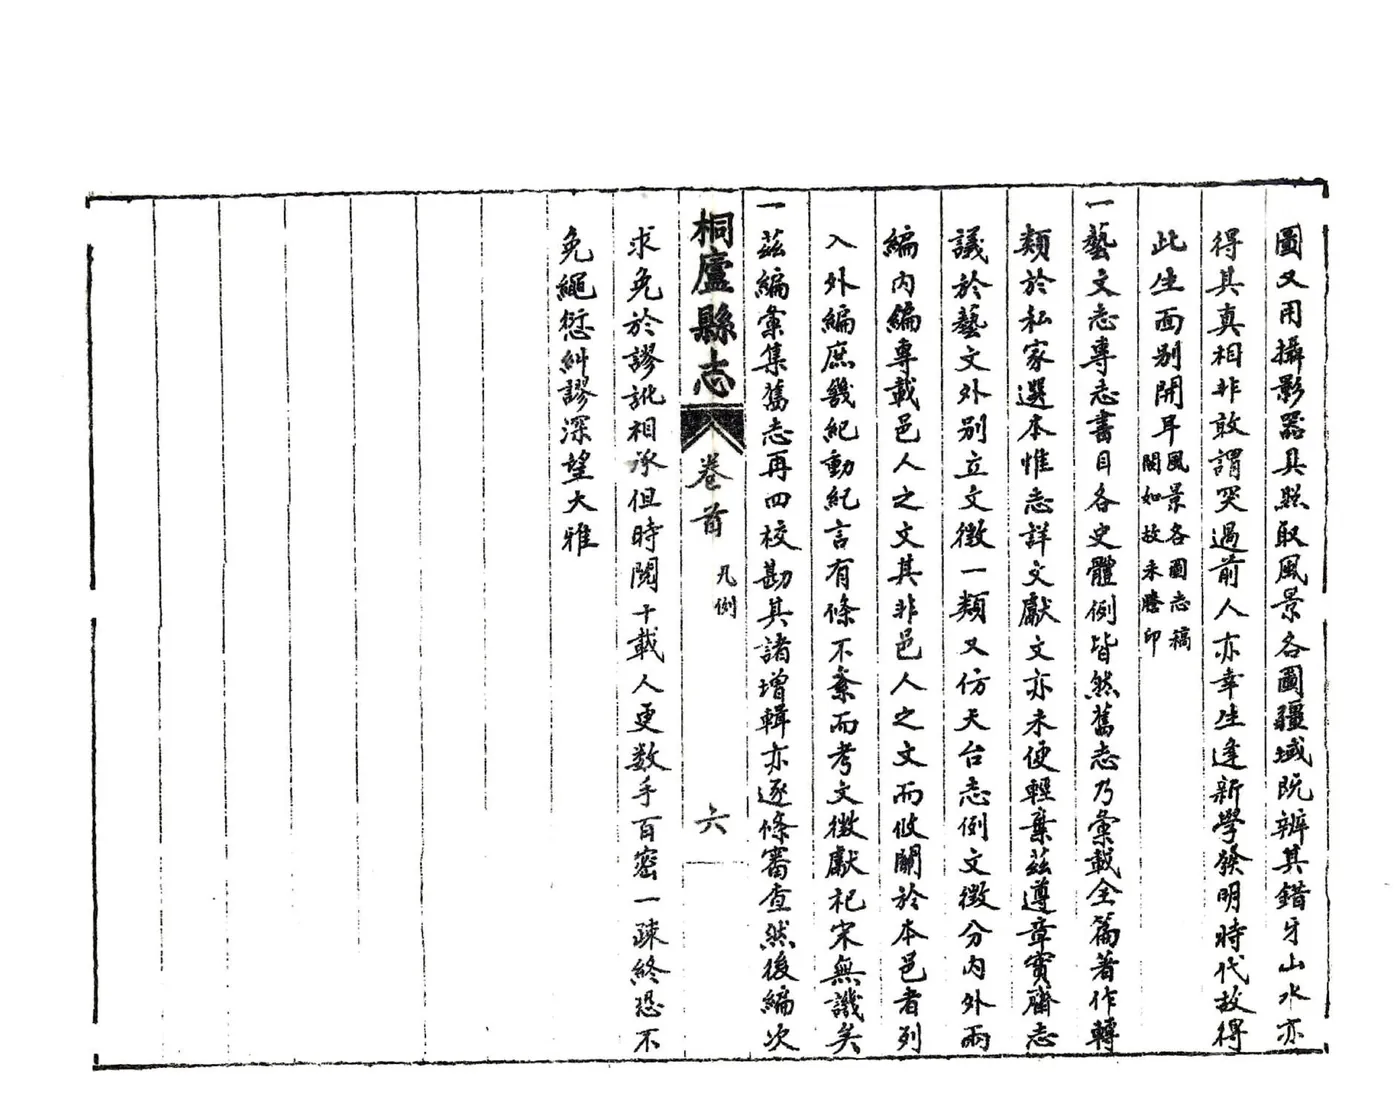 圖又用攝影器具照取風景各圖疆域既辨其錯牙山水亦
得其真相非敢謂突過前人亦幸生逢新學發明時代故得
此生面別開耳風景各圖志稿
闕如故未謄印
一藝文志專志書目各史體例皆然舊志乃彙載全篇著作轉
類於私家選本惟志詳文獻文亦未便輕棄茲遵章實齋志
議於藝文外別立文徵一類又仿天台志例文徵分內外兩
編內編專載邑人之文其非邑人之文而攸關於本邑者列
入外編庶幾紀動紀言有條不紊而考文徵獻杞宋無譏矣
一茲編彙集舊志再四校勘其諸增輯亦逐條審查然後編次
桐廬縣志
卷首
凡例
六
求免於謬訛相承但時閱十載人更数手百密一疎終恐不
免繩愆糾謬深望大雅